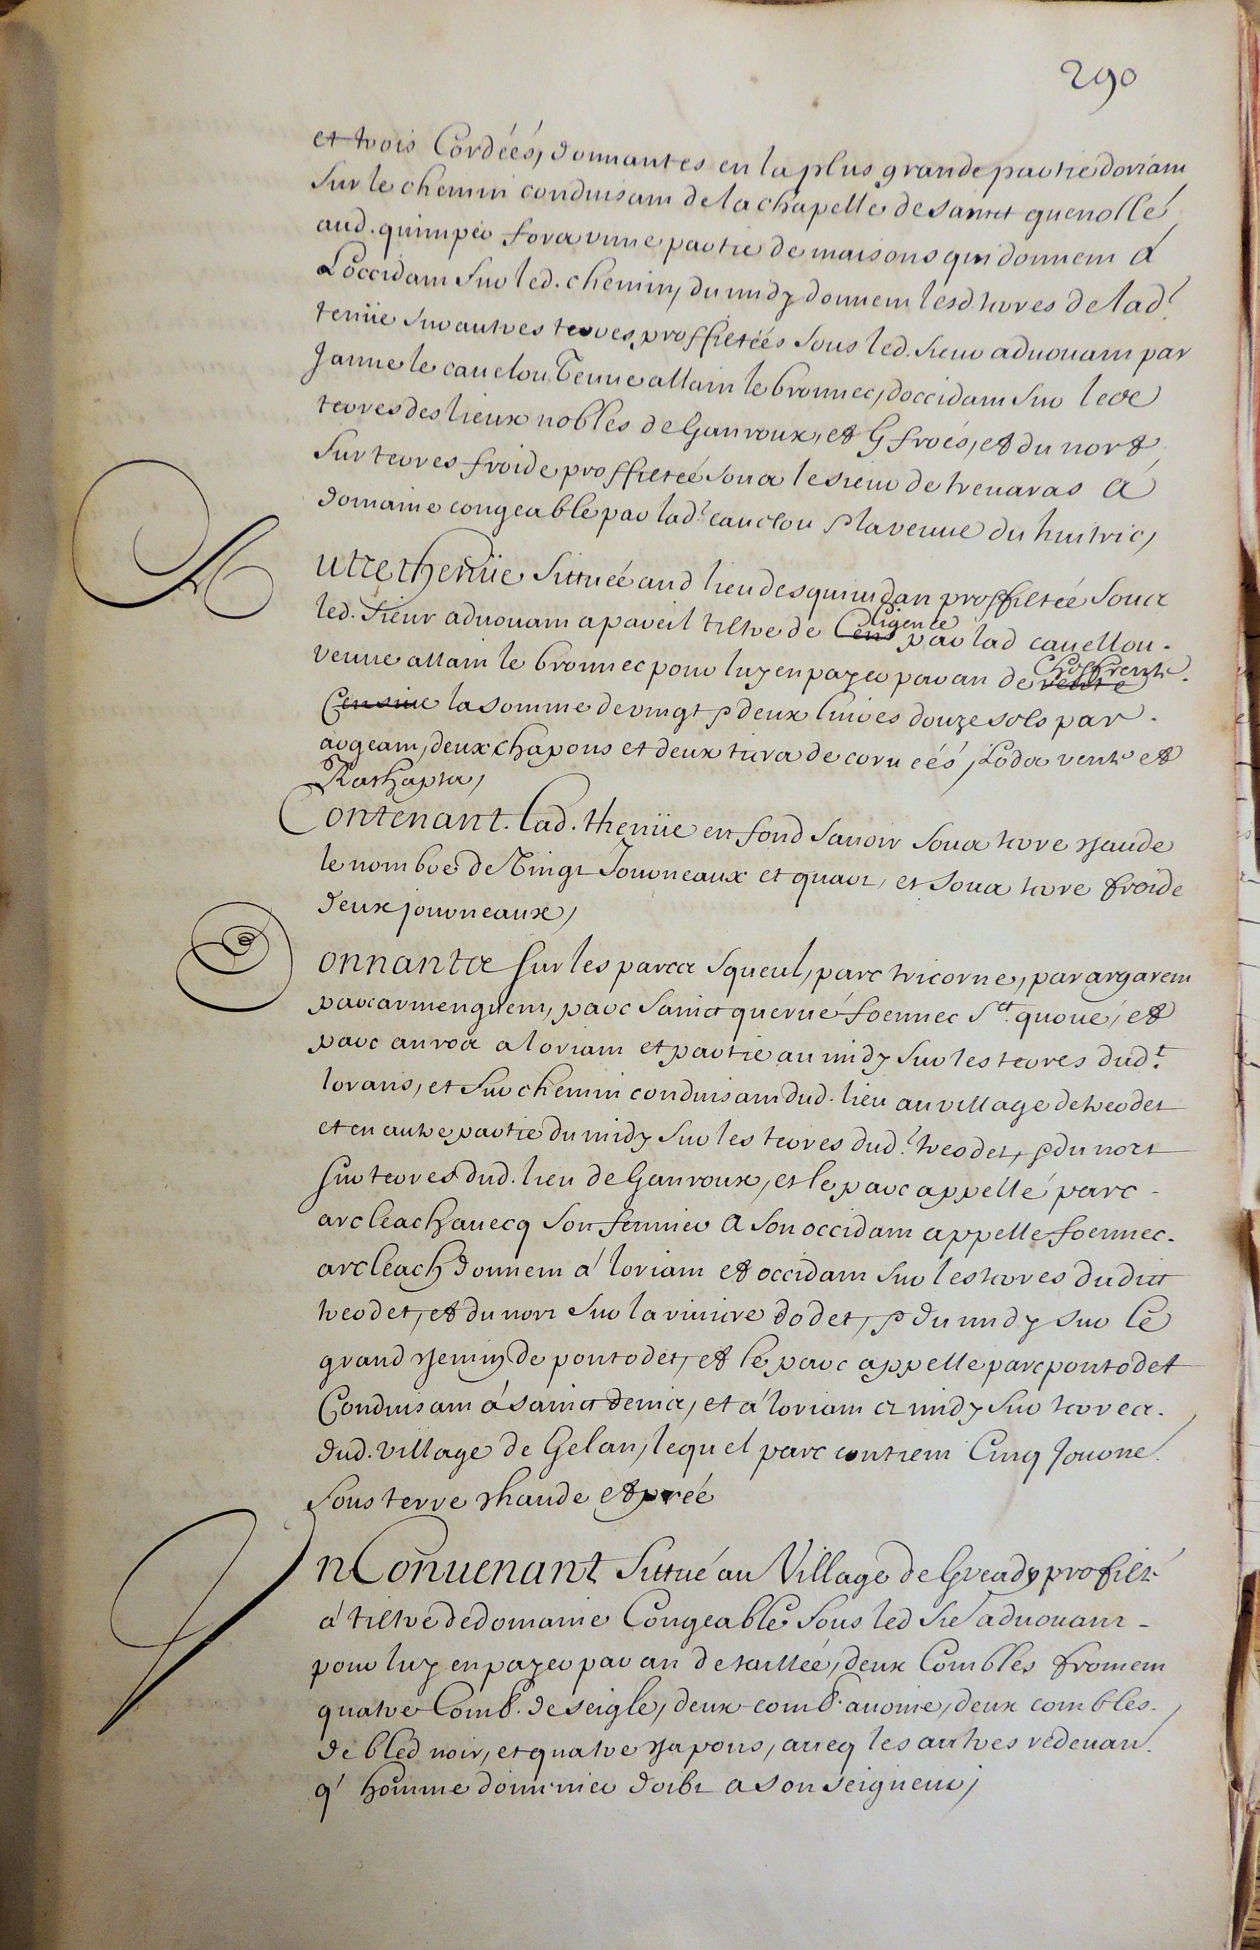 290
et trois Cordéés, donnantes en la plus grande partie doriant
Sur le chemin conduisant de la chapelle de sainct guenollé
aud. quimper fors vnne partie de maisons qui donnent á
Loccidant sur led. chemin, du midy donnent lesd. terres de lad.
tenüe sur autres terres proffitéés sous led. sieur aduouant par
Janne le cauelou Veuue allain le bronnec, doccidant sur
terres des lieux nobles de Ganroux, et du nort
Sur terres froide proffitéé sous le sieur de treuaras á
domaine congeable par lad. caueloupveuue du huitric,
Autre thenüe Sittuéé aud lieu desquiuidan proffitéé Sous
led. Sieur aduouant a pareil tiltre de Cens ligence par lad cauellou.
veuue allain le bronnec pour luy en payer par an de rente Cheffrente.
Censiue la somme de vingt deux liures douze sols par.
argeant, deux chapons et deux tiers de coruéés, Lods vente et
Rashapts,
Contenant. Lad. thenüe en fond sauoir sous terre chaude
le nombre de Vingt Journeaux et quart, et sous terre froide
deux journeaux,
Donnants sur les parcs squeul, parc tricorne, parargarem
parcarmenguem, parc sainct querué foennec St. quoué, et
parc an rox a loriant et partie au midy sur les terres dudt.
lorans, et sur chemin conduisant dud. lieu au village detreodet
et en autre partie du midy sur les terres dud. treodet, du nort
sur terres dud. lieu de Ganroux, et le parc appellé parc
arcleach auecq son fennier a son occidant appelle foennec.
arcleach donnent á loriant et occidant sur les terres dudit
treodet, et du nort sur la riuiere dodet, du midy sur le
grand chemin de pontodet, et le parc appelle parcpontodet
Conduisant á sainct denis, et á loriant et midy sur terres.
dud. village de Gelan, lequel parc contient Cinq Journe.
sous terre chaude et préé
Vn Conuenant Sittué au Village de proffité
á tiltre de domaine Congeable sous led Sie aduouant
pour luy en payer par an de tailléé, deux Combles froment
quatre Comb. de seigle, deux comb. auoine, deux combles.
de bled noir, et quatre chapons, aueq les autres redeuan.
q' homme dommier doibt a son seigneur,